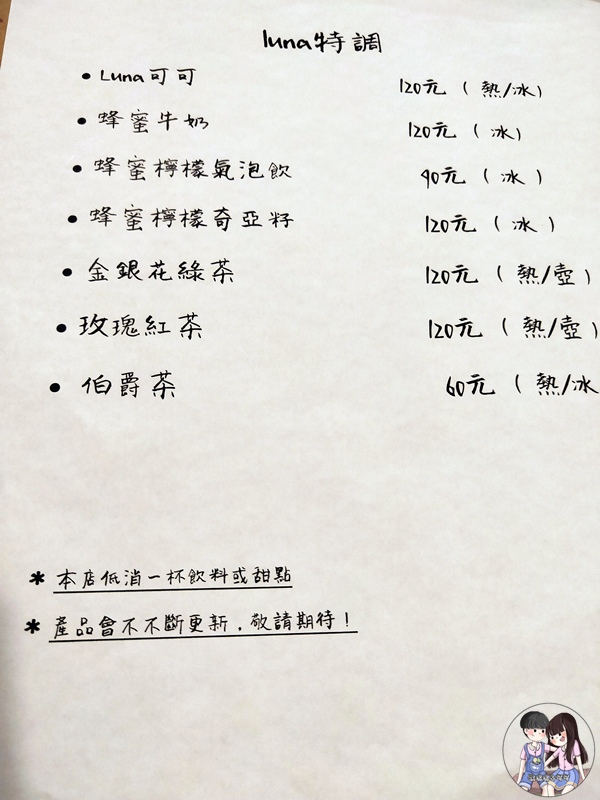 luna特調
• Luna可可 120元（熱/冰）
• 蜂蜜牛奶 120元（冰）
• 蜂蜜檸檬氣泡飲 90元（冰）
• 蜂蜜檸檬奇亞籽 120元（冰）
• 金銀花綠茶 120元（熱/壺）
• 玫瑰紅茶 120元（熱/壺）
• 伯爵茶 60元（熱/冰
* 本店低消一杯飲料或甜點
* 產品會不不斷更新，敬請期待！